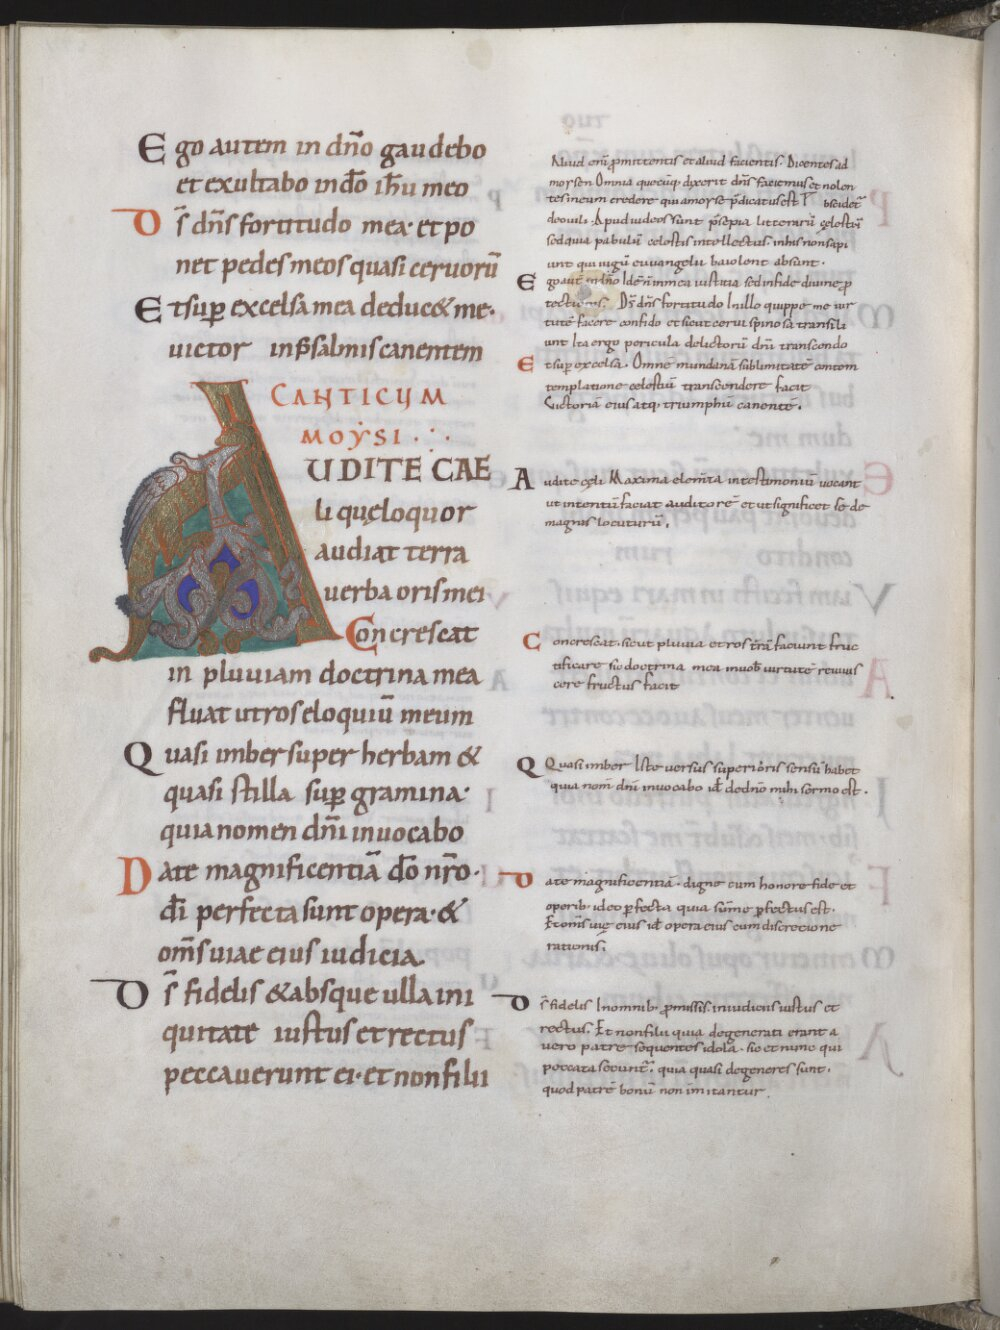 Ego autem in dn̄o gaudebo
et exultabo in dō ih̄u meo
Ds̄ dn̄s fortitudo mea· et po
net pedes meos quasi ceruorū
Et sup̄ excelsa mea deduc& me·
uictor in psalmis canentem
CANTICUM
MOYSI
AUDITE CAE
li quę loquor
audiat terra
uerba oris mei
Concrescat
in pluuiam doctrina mea
fluat ut ros eloquiū meum
Quasi imber super herbam &
quasi stilla sup̄ gramina·
quia nomen dn̄i inuocabo
Date magnificentiā dō nr̄o·
dī perfecta sunt opera· &
om̄s uiae eius iudicia
Ds̄ fidelis & absque ulla ini
quitate iustus et rectus
peccauerunt ei· et non filii
Aliud eni promittentis et aliud facientis. Dicentes ad
moysen Omnia quecūq; dixerit dn̄s faciemus et nolen
tes in eum credere qui a moyse p̄dicatus est
deouili· Apud iudeos sunt p̄sepia litterarū cęlestiū
sed quia pabulū cęlestis intellectus in his non sapi
unt qui iugū euuangelii baiolent absunt·
Ego aut in dn̄o Id ē ñ in mea iustitia sed in fide diuinę p
Ds̄ dn̄s fortitudo In illo quippe me uir
tutē facere confido et sicut cerui spinosa transili
unt Ita ergo pericula delictorū dn̄i transcendo
Et sup̄ excelsa· Omnē mundanā sublimitatē contem
templatione cęlestiū transcendere facit
Victoriā eius atq; triumphū canentē·
Audite cęli Maxima elem̄ta in testimoniū uocant
ut intentū faciat auditorē et ut significet se de
magnis locuturū·
Concrescat· sicut pluuia et ros tr̄ā faciunt fruc
tificare sic doctrina mea in uob̄ uirtute reuiuis
cere fructus facit
Quasi imber Iste uersus superioris sensū habet
quia nom̄ dn̄i inuocabo id ē de dn̄o mihi sermo est·
Date magnificentiā· digne cum honore fide et
operib· ideo p̄fecta quia sum̄e p̄fectus est·
Et om̄s uię eius id ē opera eius cum discretione
rationis;
Ds̄ fidelis In omnib· p̄missis· in iudiciis iustus et
rectus· Et non filii quia degenerati erant a
uero patre sequentes idola· sic et nunc qui
peccata secunt̄· quia quasi degeneres sunt·
quod patrē bonū non imitantur